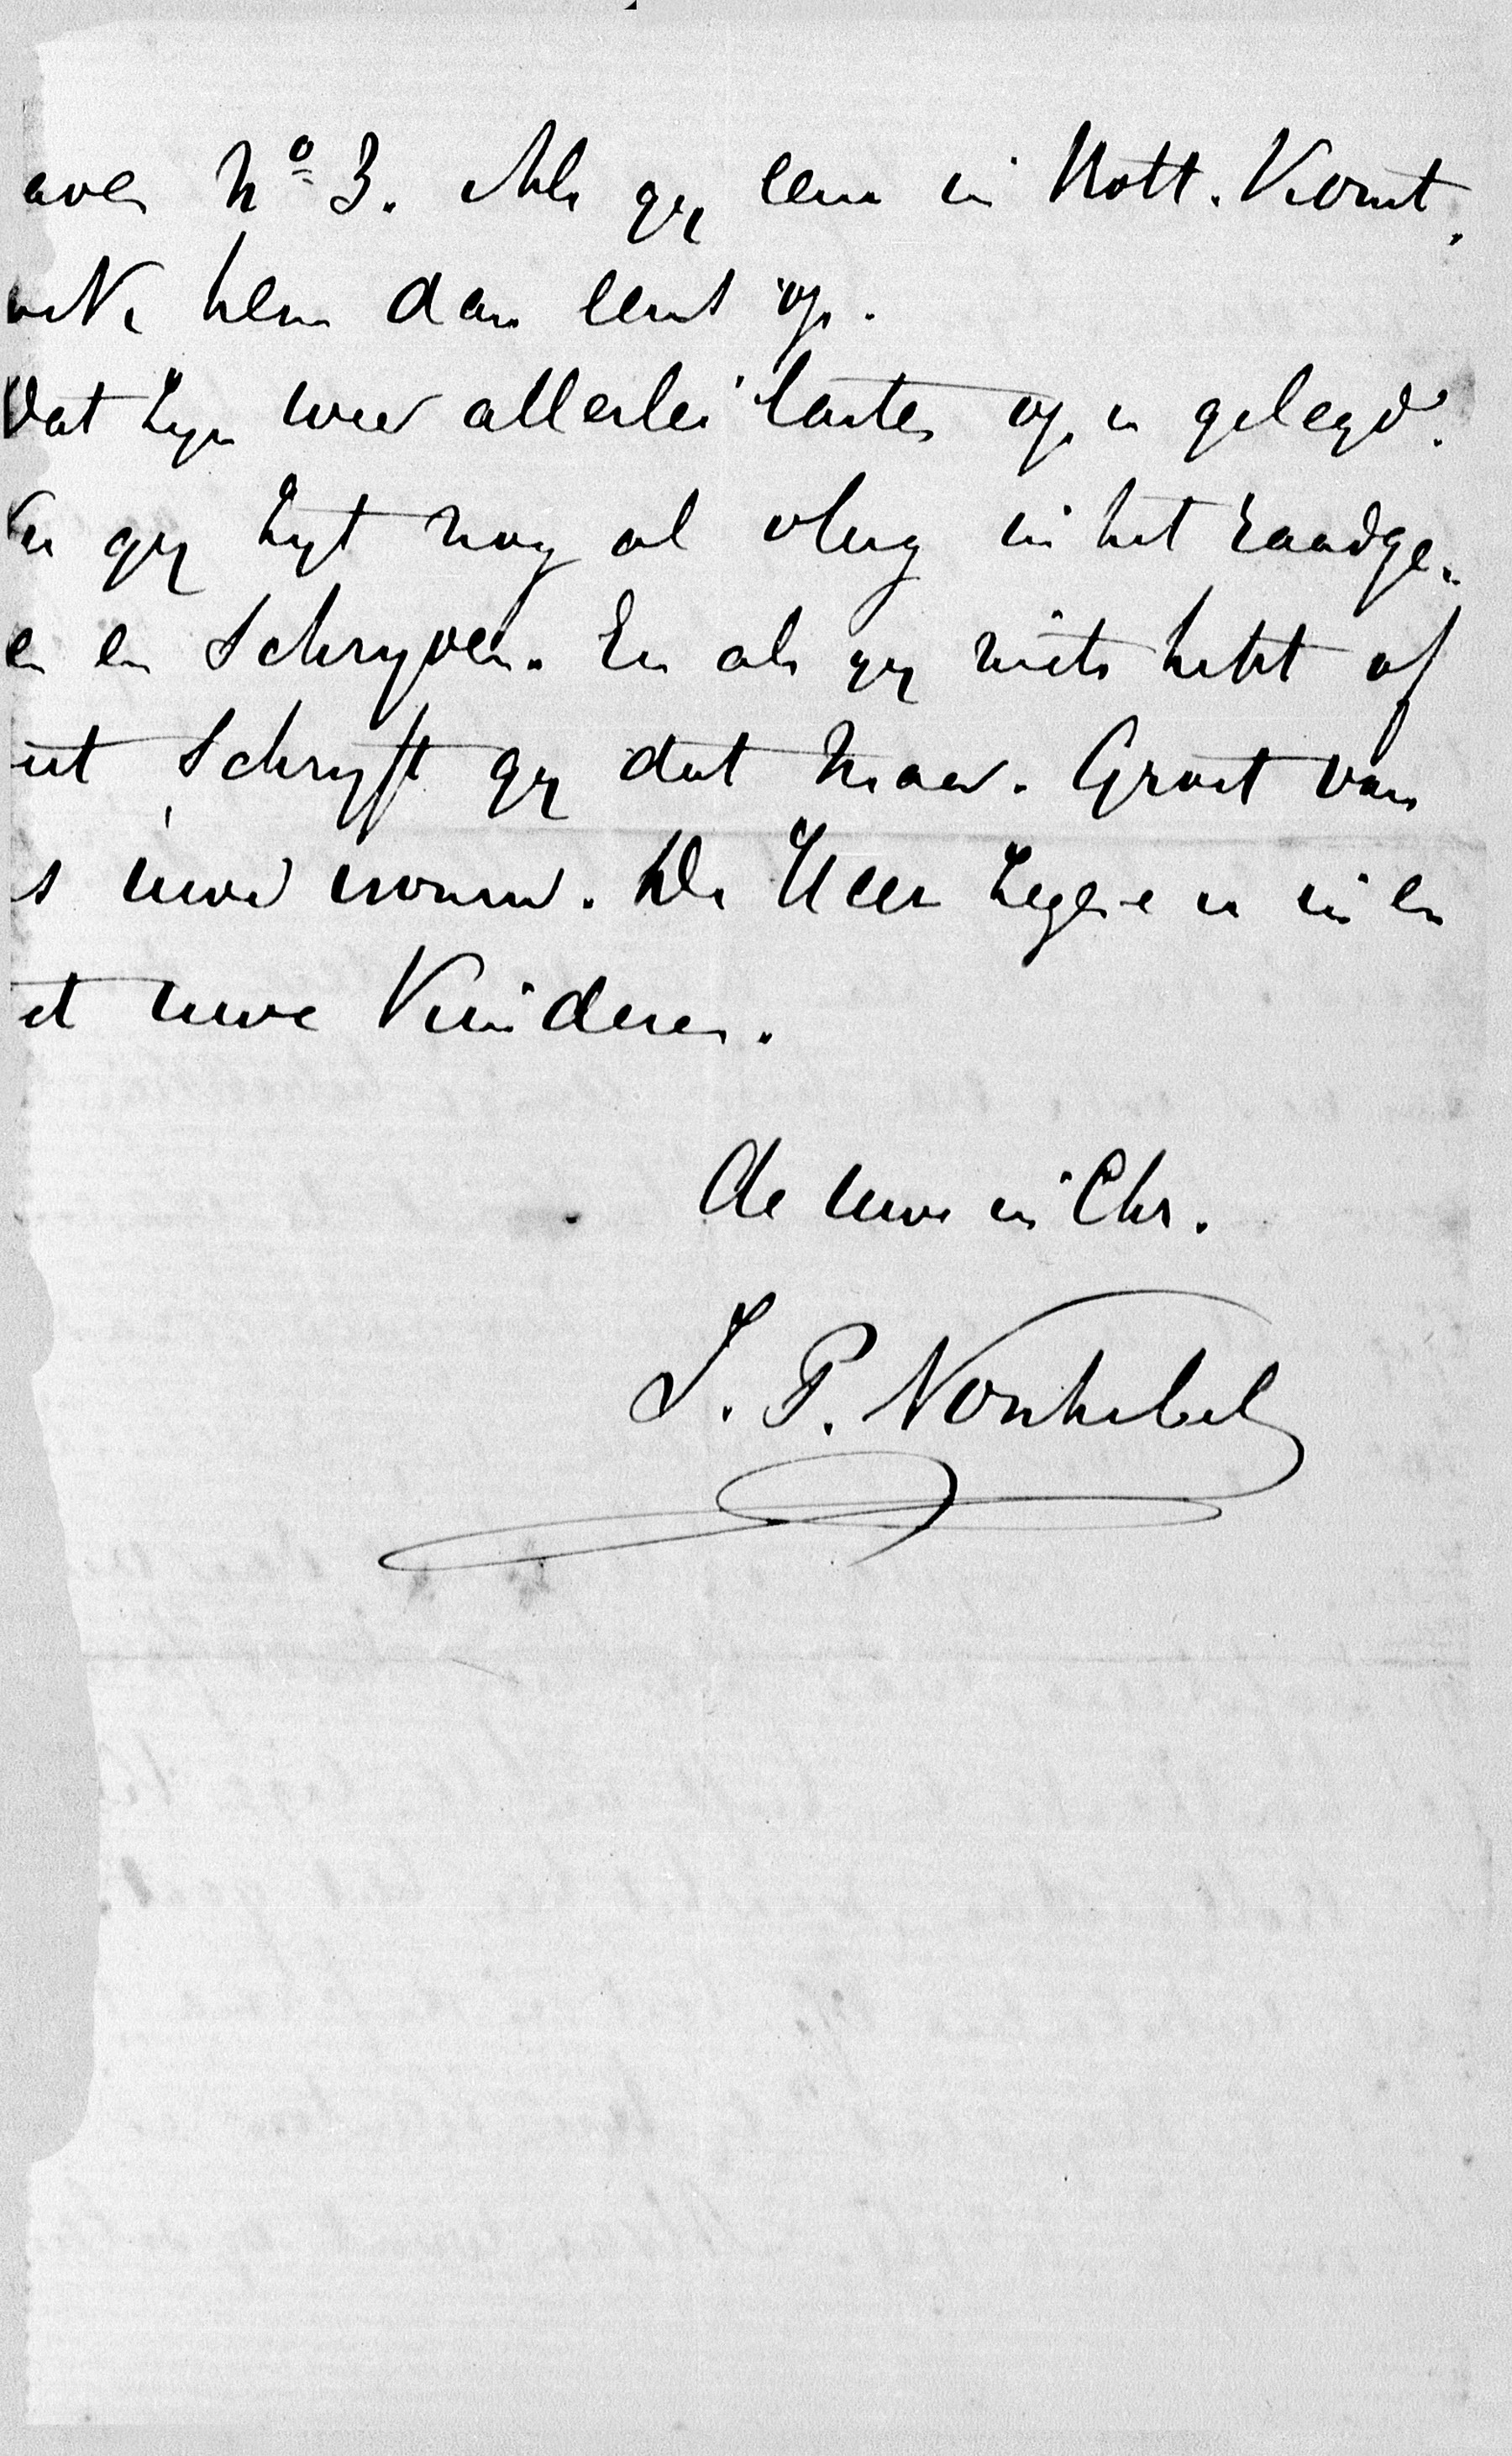 aven No 3. Als gy eens in Rott. komt.
hem dan eens op.
Dat zyn weer allerlei lasten op u gelegd.
gy zyt nog al vlug in het raadge-
en en schryven. En als gy niets hebt of
iet schryft gy dat maar. Groet van
s uwe vrouw. De Heer zegene u in en
et uwe kinderen.
de uwe in Chr.
J. P. Nonhebel